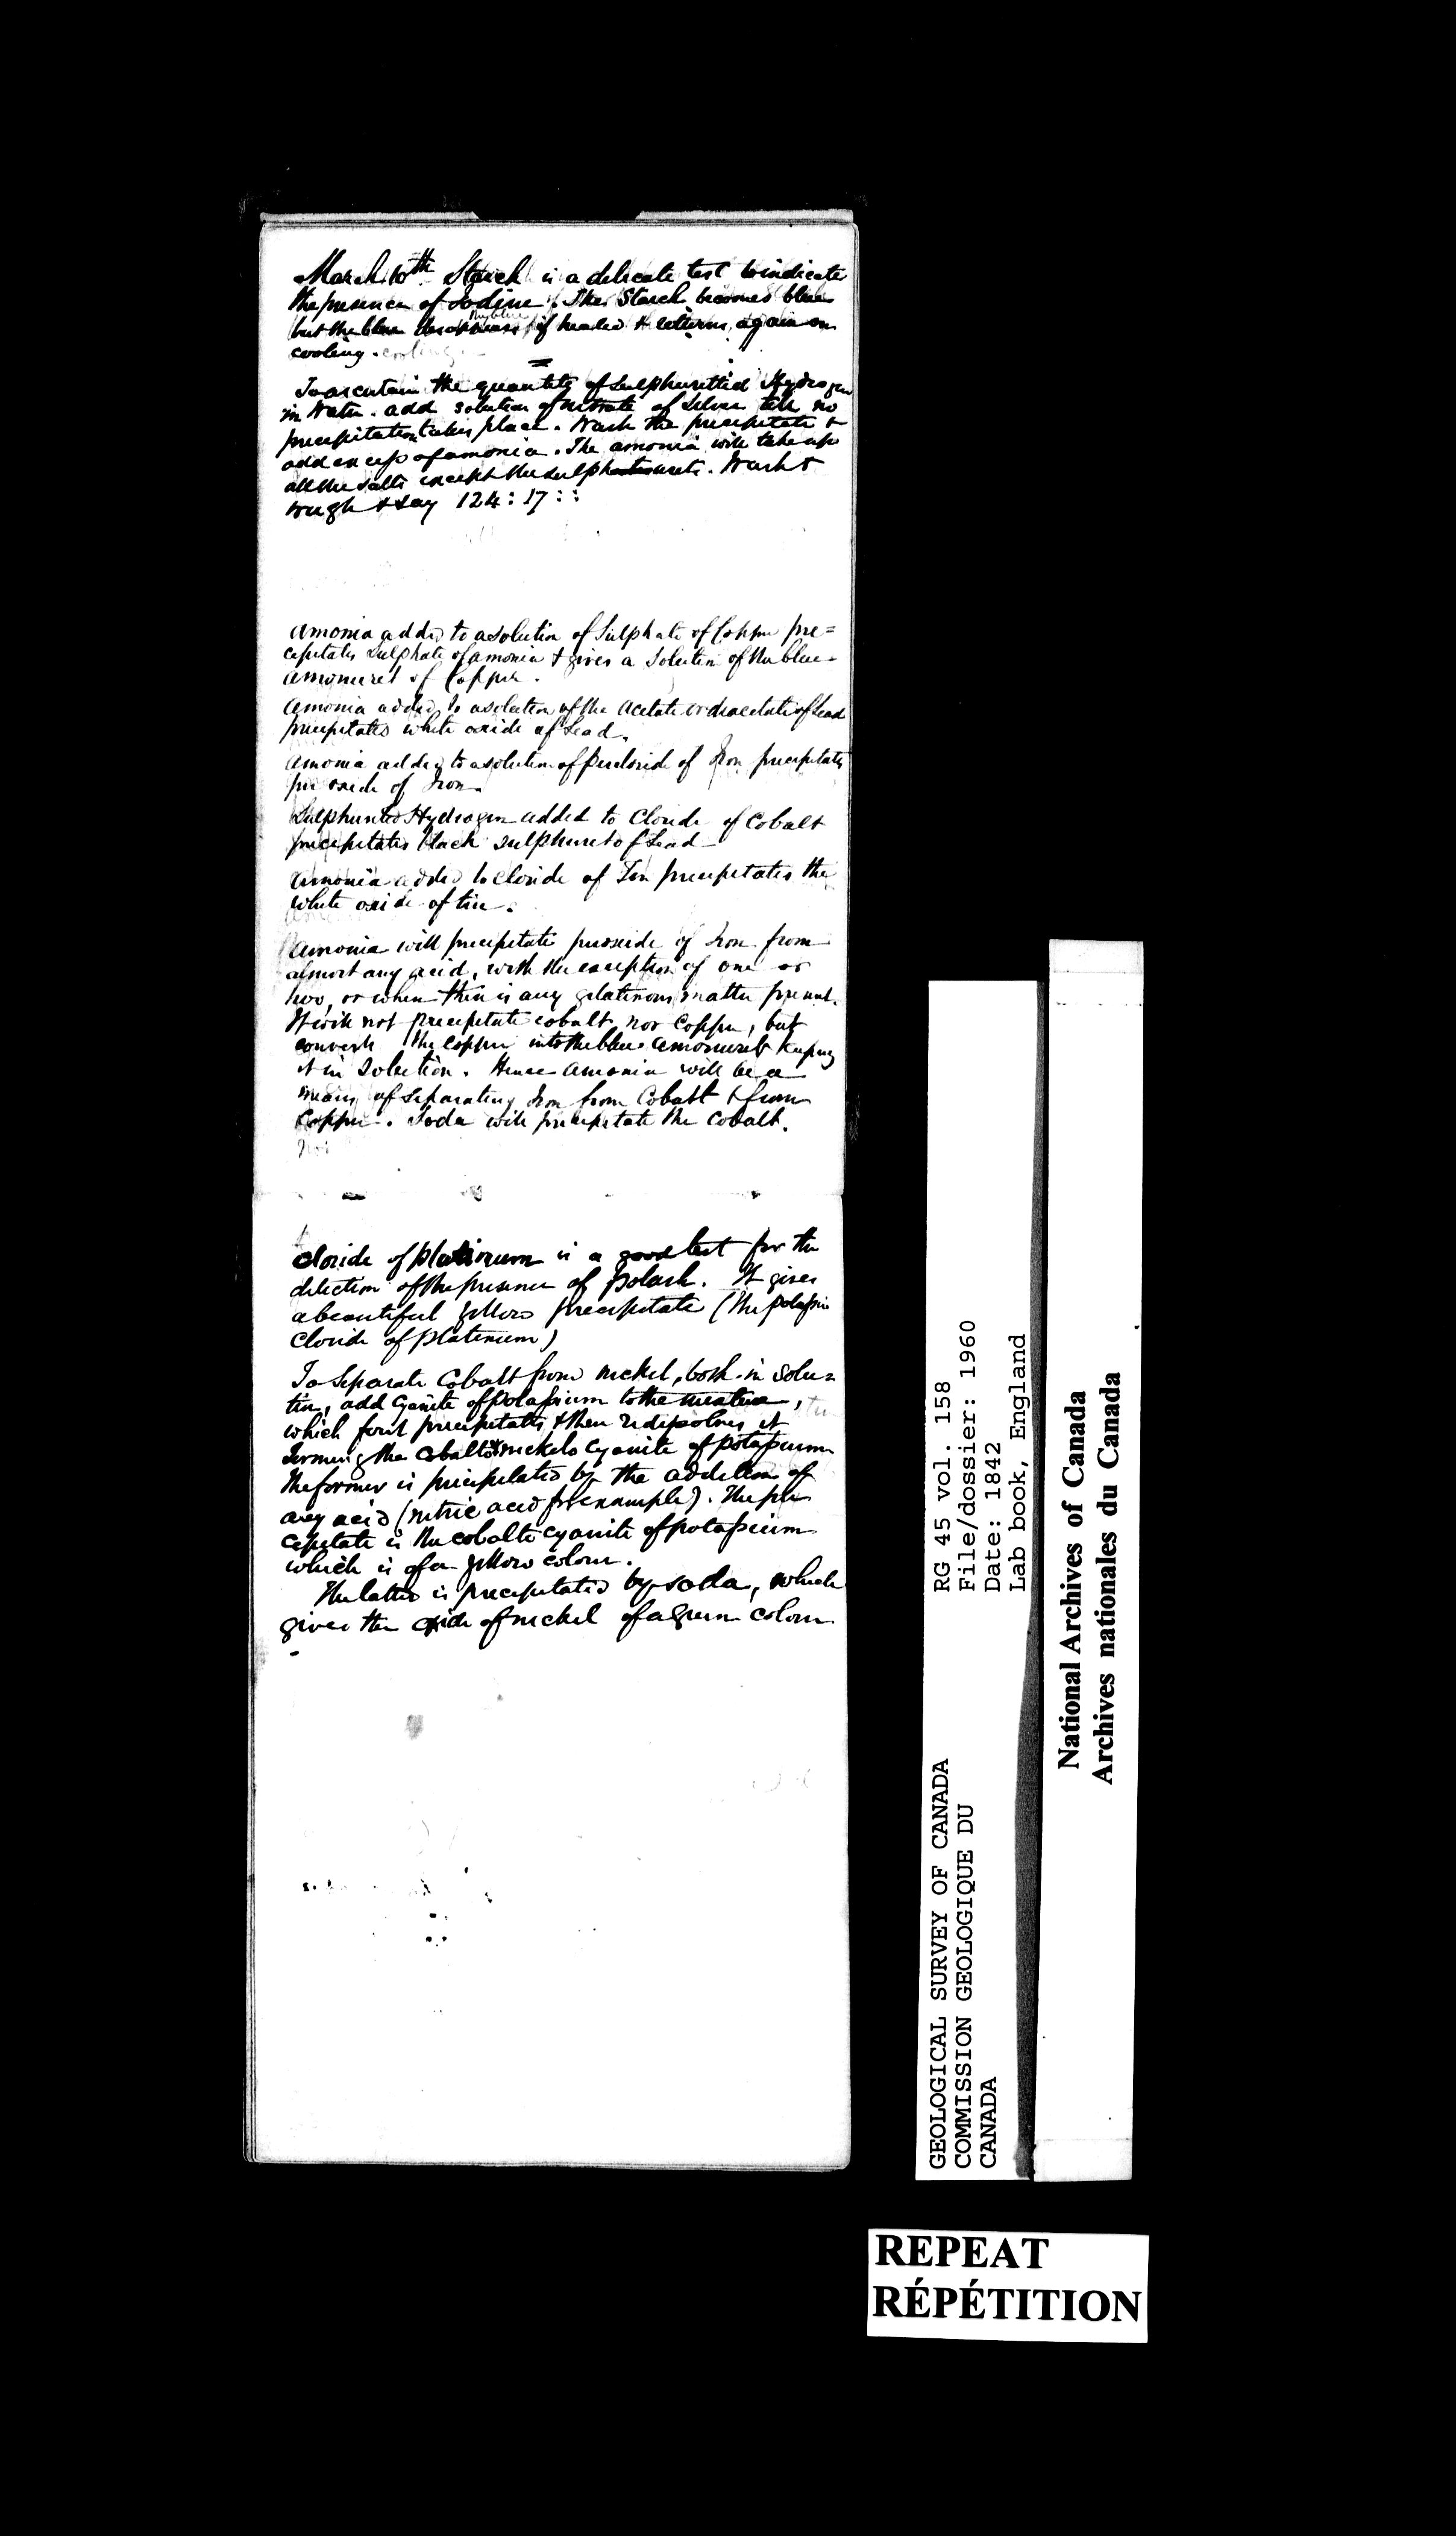 March 10th. Starch is a delicate test to indicate
the presence of Iodine. The Starch becomes blue
but the blue disappears if heated & returns again on
cooling.
To ascertain the quantity of Sulphuretted Hydrogen
in Water. add solution of nitrate of Silver till no
precipitation takes place. Wash the precipitate &
add excess of amonia. The amonia will take up
all the salts except the sulphuret. Wash &
weigh & say 124 : 17 : :
Amonia added to a solution of Sulphate of Copper pre=
cipitates Sulphate of amonia & gives a Solution of the blue
amonuret of Copper.
Amonia added to a solution of the Acetate or diacetate of Lead
precipitates white oxide of Lead.
Amonia added to a solution of percloride of Iron precipitates
peroxide of Iron.
Sulphuretted Hydrogen added to Cloride of Cobalt
precipitates black sulphuret of Lead
Amonia added to cloride of Tin precipitates the
white oxide of tin.
Amonia will precipitate peroxide of Iron from
almost any acid, with the exception of one or
two, or when there is any gelatinous matter present.
It will not precipitate cobalt nor Copper, but
converts the Copper into the blue amonuret keeping
it in Solution. Hence Amonia will be a
means of separating Iron from Cobalt & from
Copper. Soda will precipitate the Cobalt.
Cloride of platinum is a good test for the
detection of the presence of potash. It gives
a beautiful yellow precipitate (the potassio
Cloride of platinum)
To Separate Cobalt from nickel, both in solu=
tion, add Cyanite of potassium to the
which first precipitates & then redissolves it
forming the cobalto & nickelo Cyanite of potassium
The former is precipitated by the addition of
any acid (nitric acid for example). The pre
cipitate is the cobalto cyanite of potassium
which is of a yellow colour.
The latter is precipitated by soda, which
gives the oxide of nickel of a green colour
GEOLOGICAL SURVEY OF CANADA
COMMISSION GEOLOGIQUE DU
CANADA
RG 45 vol. 158
File/dossier: 1960
Date: 1842
Lab book, England
National Archives of Canada
Archives nationales du Canada
REPEAT
RÉPÉTITION